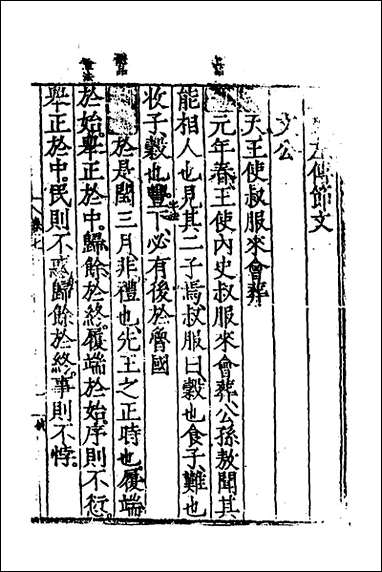 左傳節文
文公
天王使叔服來會葬
元年春王使內史叔服來會葬公孫敖聞其
能相人也見其二子焉叔服曰穀也食子難也
收子穀也豐下必有後於魯國
於是閏三月非禮也先王之正時也履端
於始舉正於中歸餘於終履端於始序則不愆
舉正於中民則不惑歸餘於終事則不悖